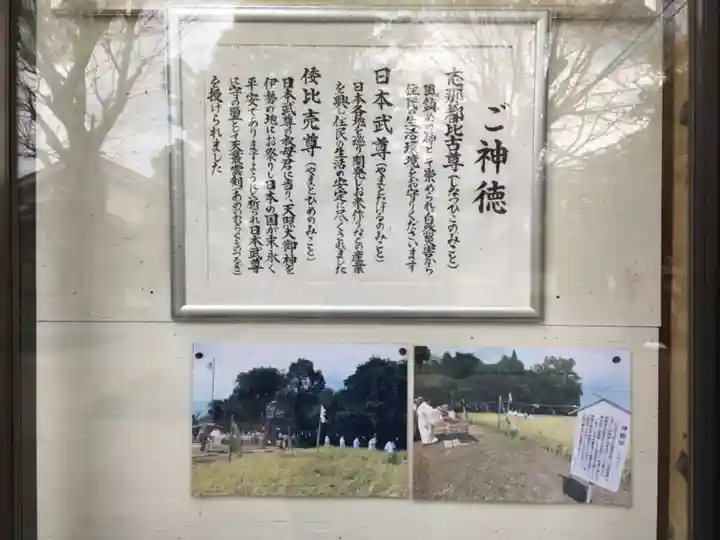 ご神徳
志那都比古尊（しなつひこのみこと）
国鎮めの神として崇められ自然災害から
住民の生活環境をお守りくださいます
日本武尊（やまとたけるのみこと）
日本各地を巡り開発しお米作りなどの産業
を興し住民の生活の安定に尽くされました
倭比売尊（やまとひめのみこと）
日本武尊の叔母君に当り、天照大御神を
伊勢の地にお祭りし日本の国が末永く
平安でありますようにと祈られ日本武尊
に守の霊として天叢雲剣（あめのむらくものつるぎ）
を授けられました
神饌田